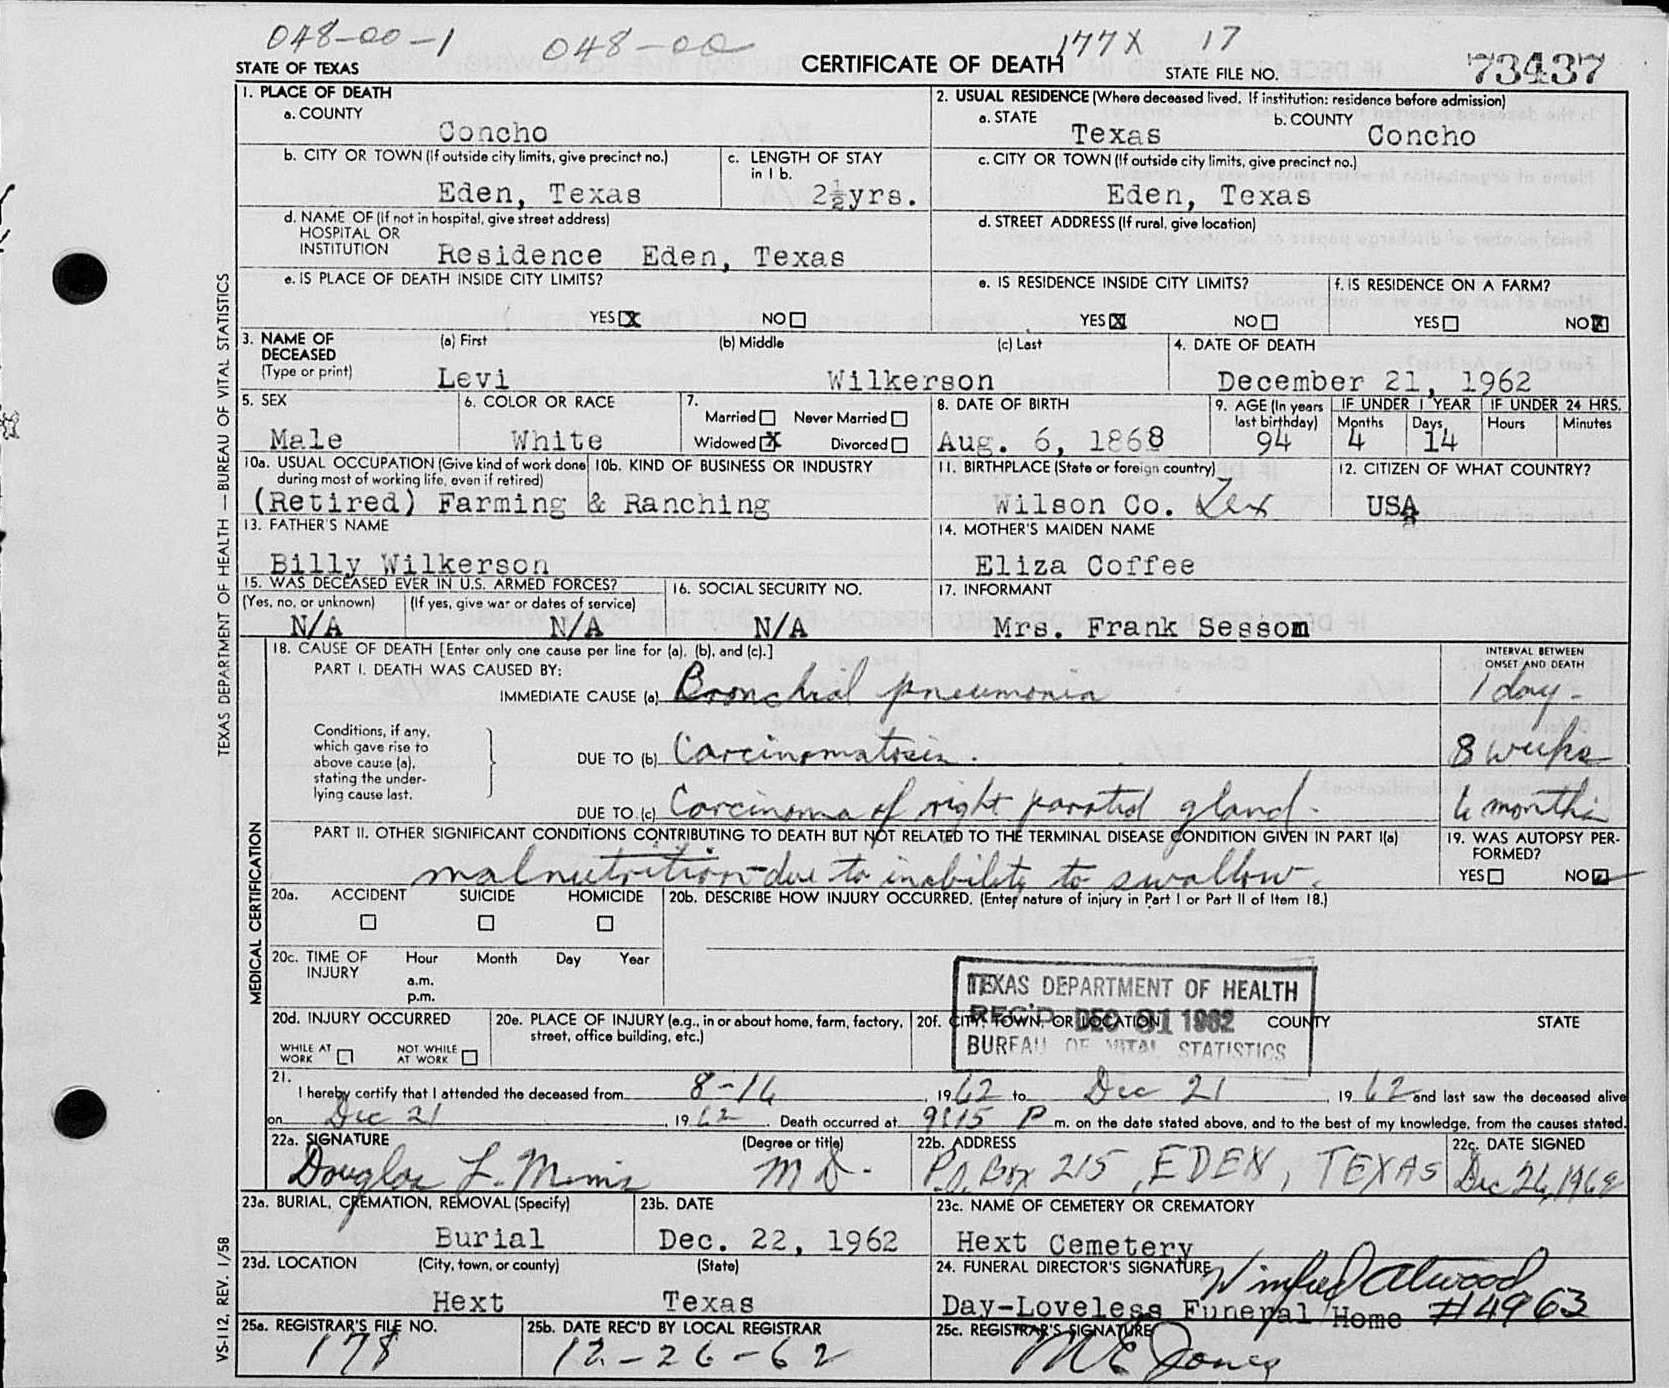 048-00-1 048-00 177X 17
STATE OF TEXAS CERTIFICATE OF DEATH STATE FILE NO. 73437
1. PLACE OF DEATH
a. COUNTY
Concho
2. USUAL RESIDENCE (Where deceased lived. If institution: residence before admission)
a. STATE b. COUNTY
Texas Concho
b. CITY OR TOWN (If outside city limits, give precinct no.)
Eden, Texas
c. LENGTH OF STAY
in 1 b.
2½yrs.
c. CITY OR TOWN (If outside city limits, give precinct no.)
Eden, Texas
d. NAME OF (If not in hospital, give street address)
HOSPITAL OR
INSTITUTION Residence Eden, Texas
d. STREET ADDRESS (If rural, give location)
e. IS PLACE OF DEATH INSIDE CITY LIMITS?
YES X NO
e. IS RESIDENCE INSIDE CITY LIMITS?
YES X NO
f. IS RESIDENCE ON A FARM?
YES NO X
3. NAME OF
DECEASED
(Type or print)
(a) First (b) Middle (c) Last
Levi Wilkerson
4. DATE OF DEATH
December 21, 1962
5. SEX
Male
6. COLOR OR RACE
White
7.
Married Never Married
Widowed X Divorced
8. DATE OF BIRTH
Aug. 6, 1868
9. AGE (In years
last birthday)
94
IF UNDER 1 YEAR
Months Days
4 14
IF UNDER 24 HRS.
Hours Minutes
10a. USUAL OCCUPATION (Give kind of work done
during most of working life, even if retired)
10b. KIND OF BUSINESS OR INDUSTRY
(Retired) Farming & Ranching
11. BIRTHPLACE (State or foreign country)
Wilson Co. Tex
12. CITIZEN OF WHAT COUNTRY?
USA
13. FATHER'S NAME
Billy Wilkerson
14. MOTHER'S MAIDEN NAME
Eliza Coffee
15. WAS DECEASED EVER IN U.S. ARMED FORCES?
(Yes, no, or unknown) (If yes, give war or dates of service)
N/A N/A
16. SOCIAL SECURITY NO.
N/A
17. INFORMANT
Mrs. Frank Sessom
MEDICAL CERTIFICATION
18. CAUSE OF DEATH [Enter only one cause per line for (a), (b), and (c).]
PART I. DEATH WAS CAUSED BY:
IMMEDIATE CAUSE (a) Bronchial pneumonia
INTERVAL BETWEEN
ONSET AND DEATH
1 day-
Conditions, if any,
which gave rise to
above cause (a),
stating the under-
lying cause last.
DUE TO (b) Carcinomatosis. 8 weeks
DUE TO (c) Carcinoma of right parotid gland- 6 months
PART II. OTHER SIGNIFICANT CONDITIONS CONTRIBUTING TO DEATH BUT NOT RELATED TO THE TERMINAL DISEASE CONDITION GIVEN IN PART I(a)
malnutrition-due to inability to swallow.
19. WAS AUTOPSY PER-
FORMED?
YES NO
20a. ACCIDENT SUICIDE HOMICIDE
20b. DESCRIBE HOW INJURY OCCURRED. (Enter nature of injury in Part I or Part II of Item 18.)
20c. TIME OF
INJURY
Hour Month Day Year
a.m.
p.m.
TEXAS DEPARTMENT OF HEALTH
REC'D DEC 31 1962
BUREAU OF VITAL STATISTICS
20d. INJURY OCCURRED
WHILE AT
WORK
NOT WHILE
AT WORK
20e. PLACE OF INJURY (e.g., in or about home, farm, factory,
street, office building, etc.)
20f. CITY, TOWN, OR LOCATION COUNTY STATE
21.
I hereby certify that I attended the deceased from 8-16, 1962 to Dec 21, 1962 and last saw the deceased alive
on Dec 21, 1962. Death occurred at 9:15 P m. on the date stated above, and to the best of my knowledge, from the causes stated.
22a. SIGNATURE (Degree or title)
Douglas L. Mims M D.
22b. ADDRESS
P.O. Box 215, EDEN, TEXAS
22c. DATE SIGNED
Dec 26, 1962
23a. BURIAL, CREMATION, REMOVAL (Specify)
Burial
23b. DATE
Dec. 22, 1962
23c. NAME OF CEMETERY OR CREMATORY
Hext Cemetery
23d. LOCATION (City, town, or county) (State)
Hext Texas
24. FUNERAL DIRECTOR'S SIGNATURE Winfred Atwood
Day-Loveless Funeral Home #4963
25a. REGISTRAR'S FILE NO.
178
25b. DATE REC'D BY LOCAL REGISTRAR
12-26-62
25c. REGISTRAR'S SIGNATURE
M E Jones
TEXAS DEPARTMENT OF HEALTH — BUREAU OF VITAL STATISTICS
VS-112, REV. 1/58